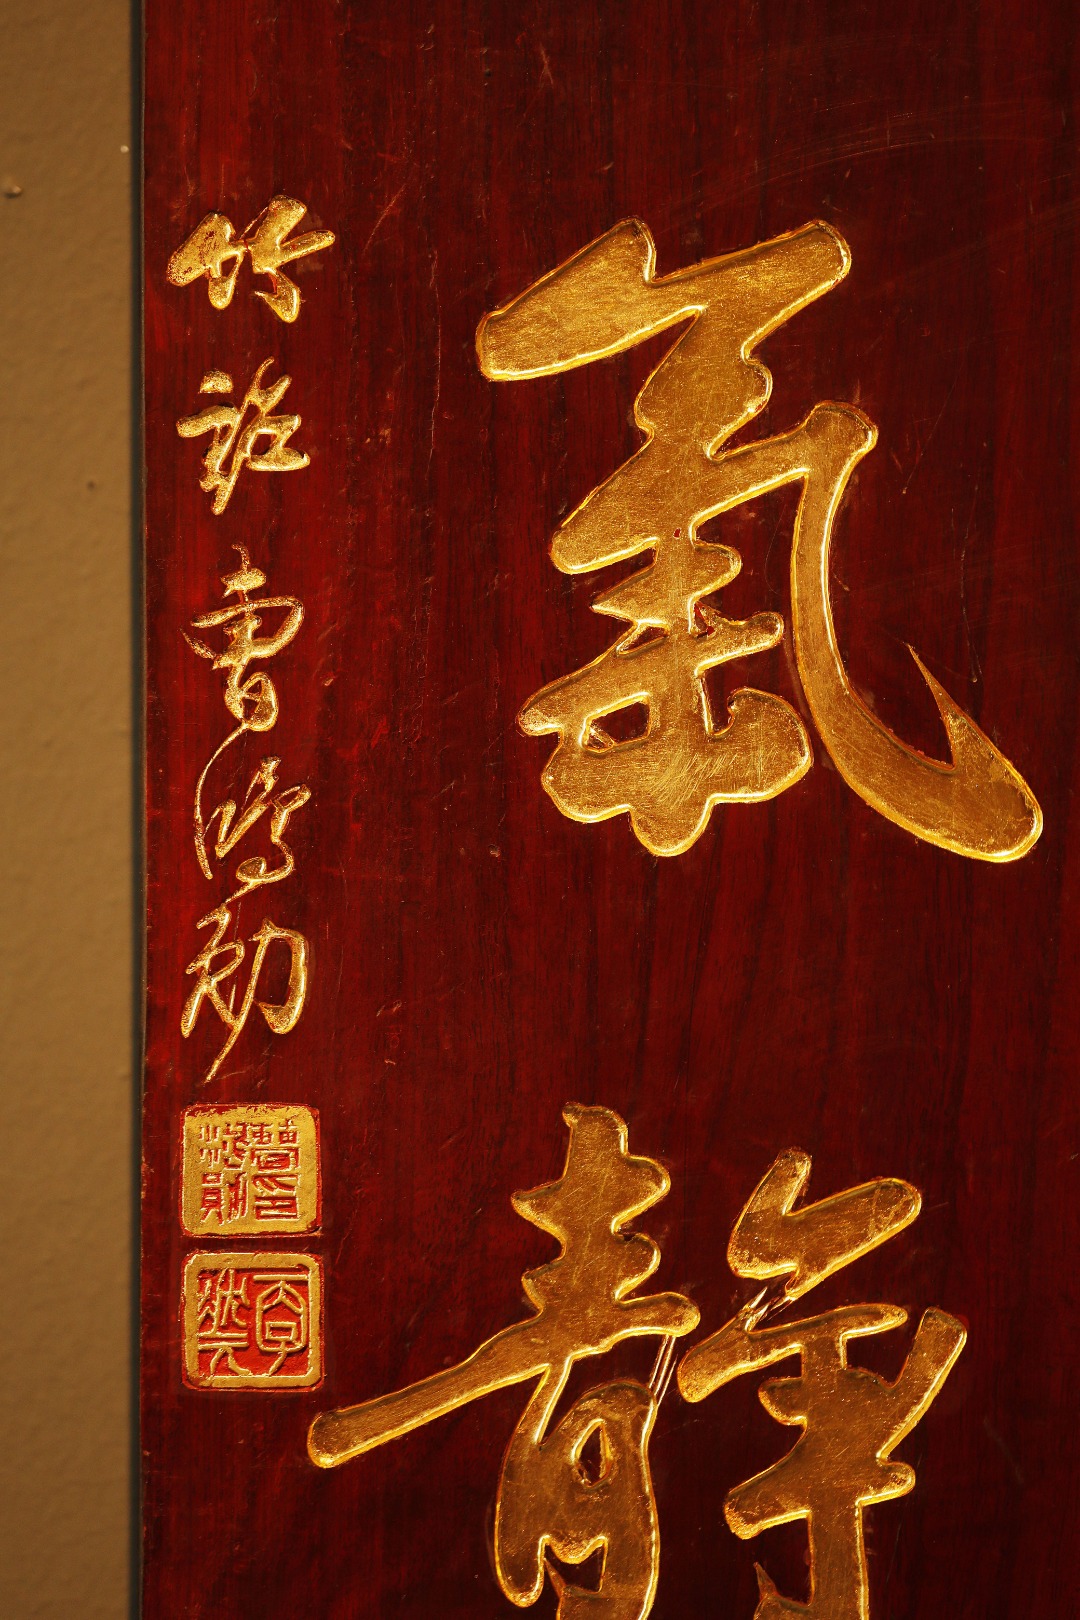 氣靜
竹銘曹鴻勛
曹印鴻勛
丙子狀元